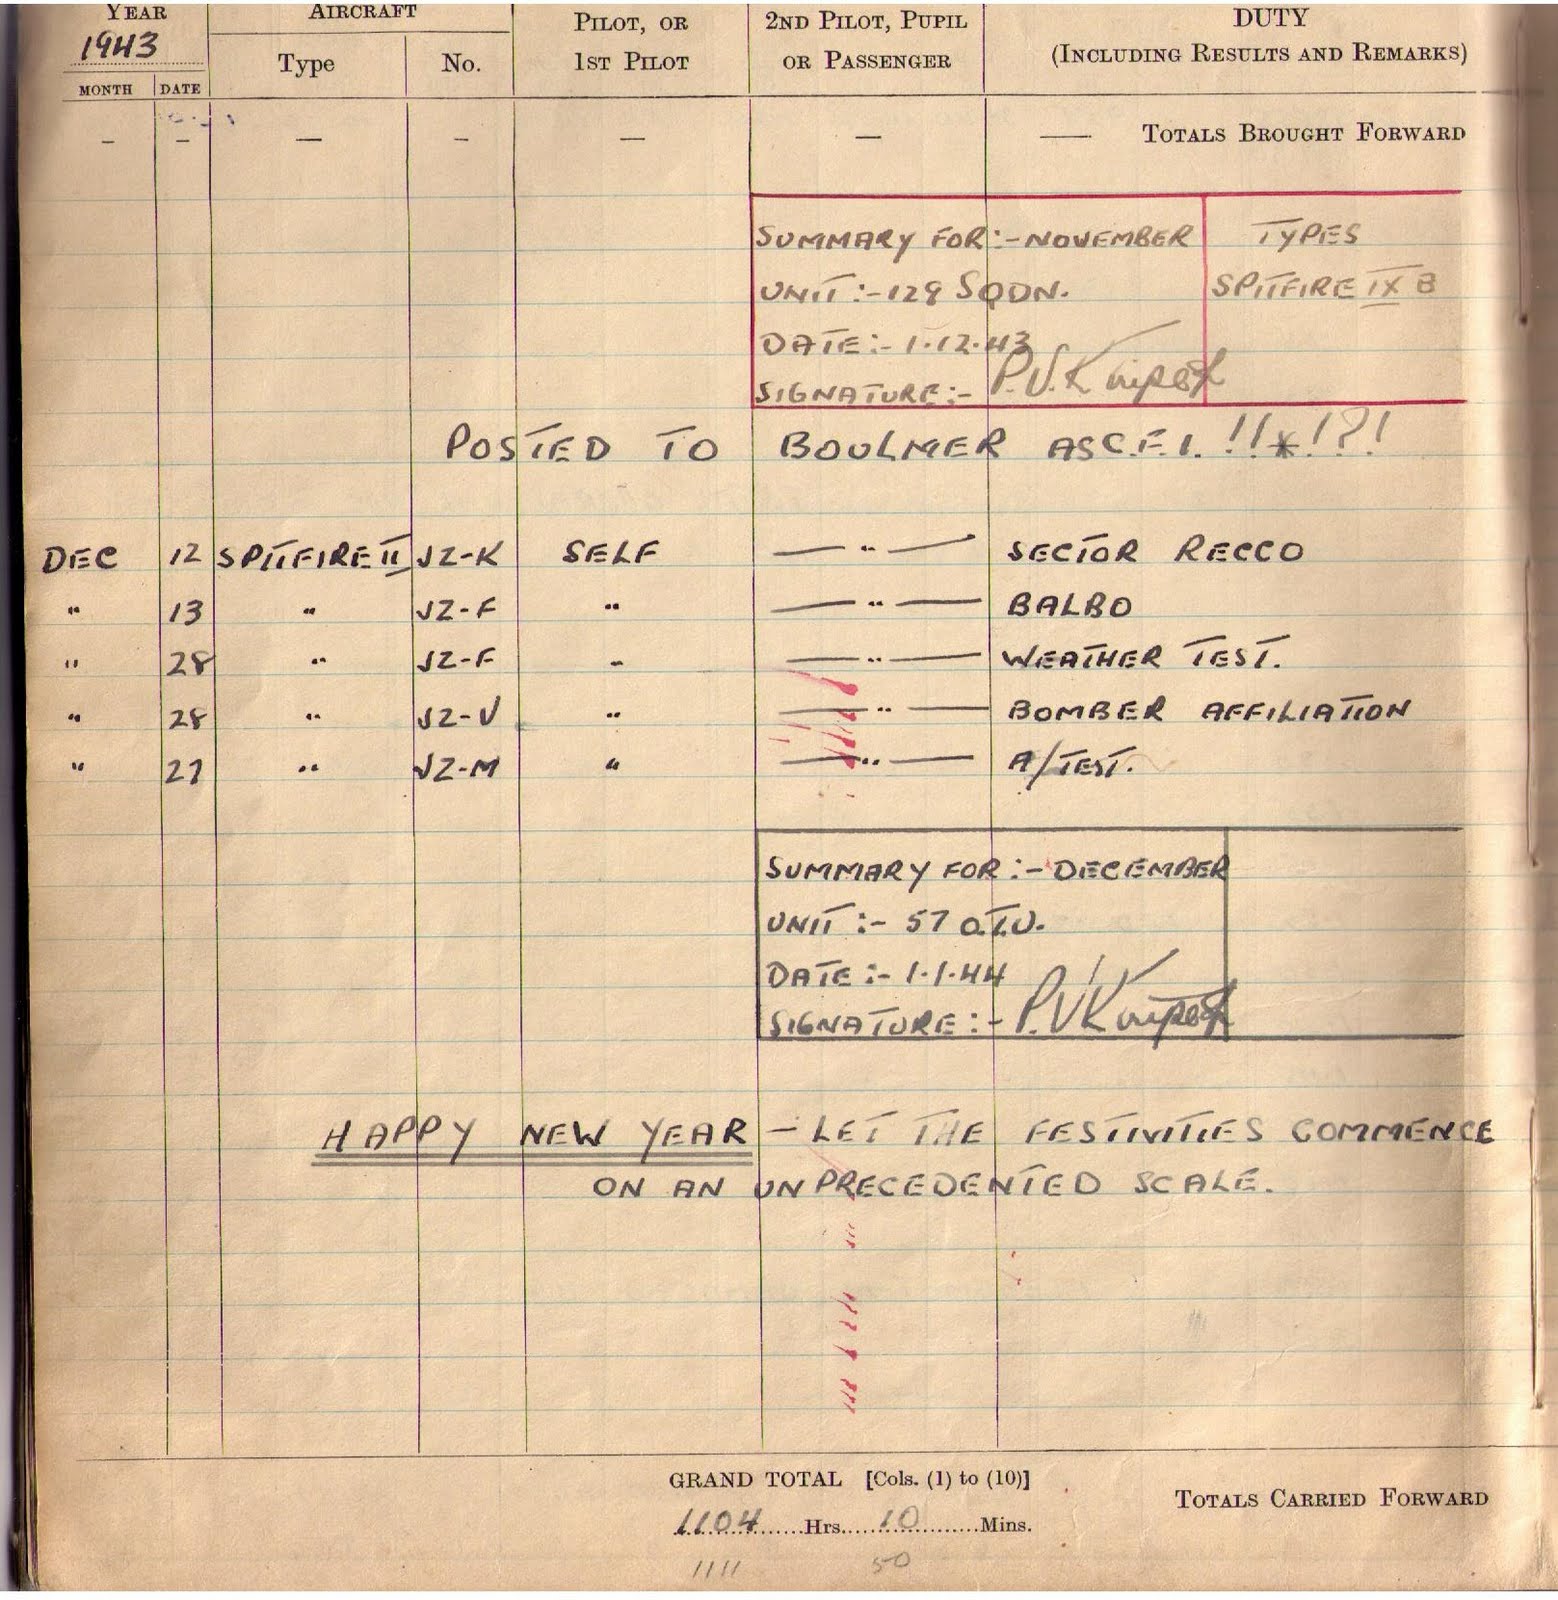 YEAR AIRCRAFT PILOT, OR 2ND PILOT, PUPIL DUTY
1943 Type No. 1ST PILOT OR PASSENGER (INCLUDING RESULTS AND REMARKS)
MONTH DATE
— — — — — — —— TOTALS BROUGHT FORWARD
SUMMARY FOR:- NOVEMBER TYPES
UNIT:- 129 SQDN. SPITFIRE IX B
DATE:- 1.12.43
SIGNATURE:- P.V.K
POSTED TO BOULMER AS C.F.I. !!*!?!
DEC 12 SPITFIRE II JZ-K SELF — " — SECTOR RECCO
" 13 " JZ-F " — " — BALBO
" 28 " JZ-F - — " — WEATHER TEST.
" 28 " JZ-V " — " — BOMBER AFFILIATION
" 27 " JZ-M " — " — A/TEST.
SUMMARY FOR:- DECEMBER
UNIT:- 57 O.T.U.
DATE:- 1.1.44
SIGNATURE:- P.V.K
HAPPY NEW YEAR - LET THE FESTIVITIES COMMENCE
ON AN UNPRECEDENTED SCALE.
GRAND TOTAL [Cols. (1) to (10)]
TOTALS CARRIED FORWARD
1104 Hrs. 10 Mins.
1111 50